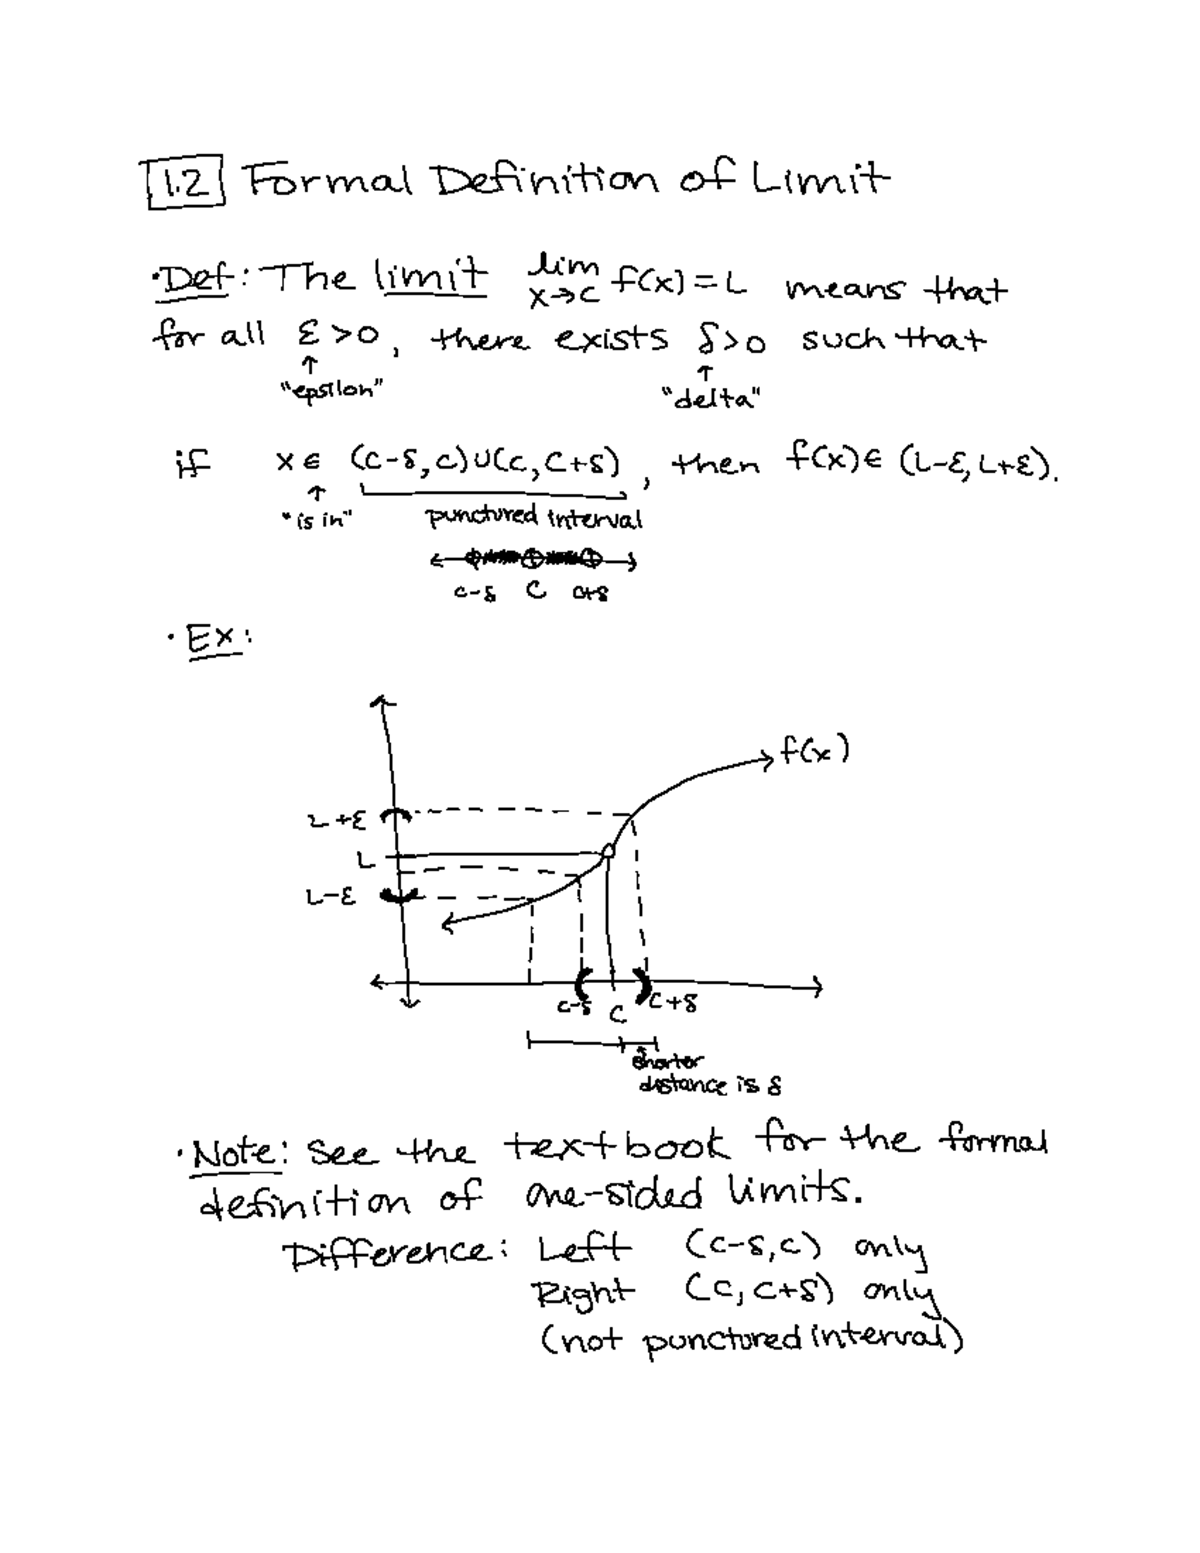 1.2 Formal Definition of Limit
•Def: The limit lim x→c f(x)=L means that
for all ε>0, there exists δ>0 such that
↑ ↑
"epsilon" "delta"
if x∈ (c-δ,c)∪(c,c+δ), then f(x)∈ (L-ε,L+ε).
↑
"is in" punctured interval
c-δ c c+δ
•Ex:
f(x)
L+ε
L
L-ε
c-δ c c+δ
shorter
distance is δ
•Note: See the textbook for the formal
definition of one-sided limits.
Difference: Left (c-δ,c) only
Right (c,c+δ) only
(not punctured interval)